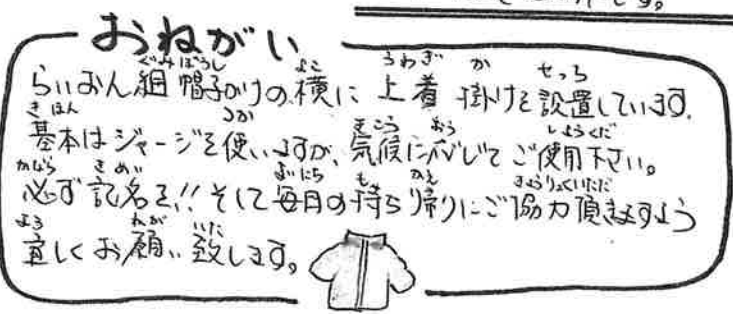 おねがい
らいおん組 帽子かけの横に 上着掛けを設置しています。
基本はジャージを使いますが、気候に応じてご使用下さい。
必ず記名を!!そして毎日の持ち帰りにご協力頂きますよう
宜しくお願い致します。